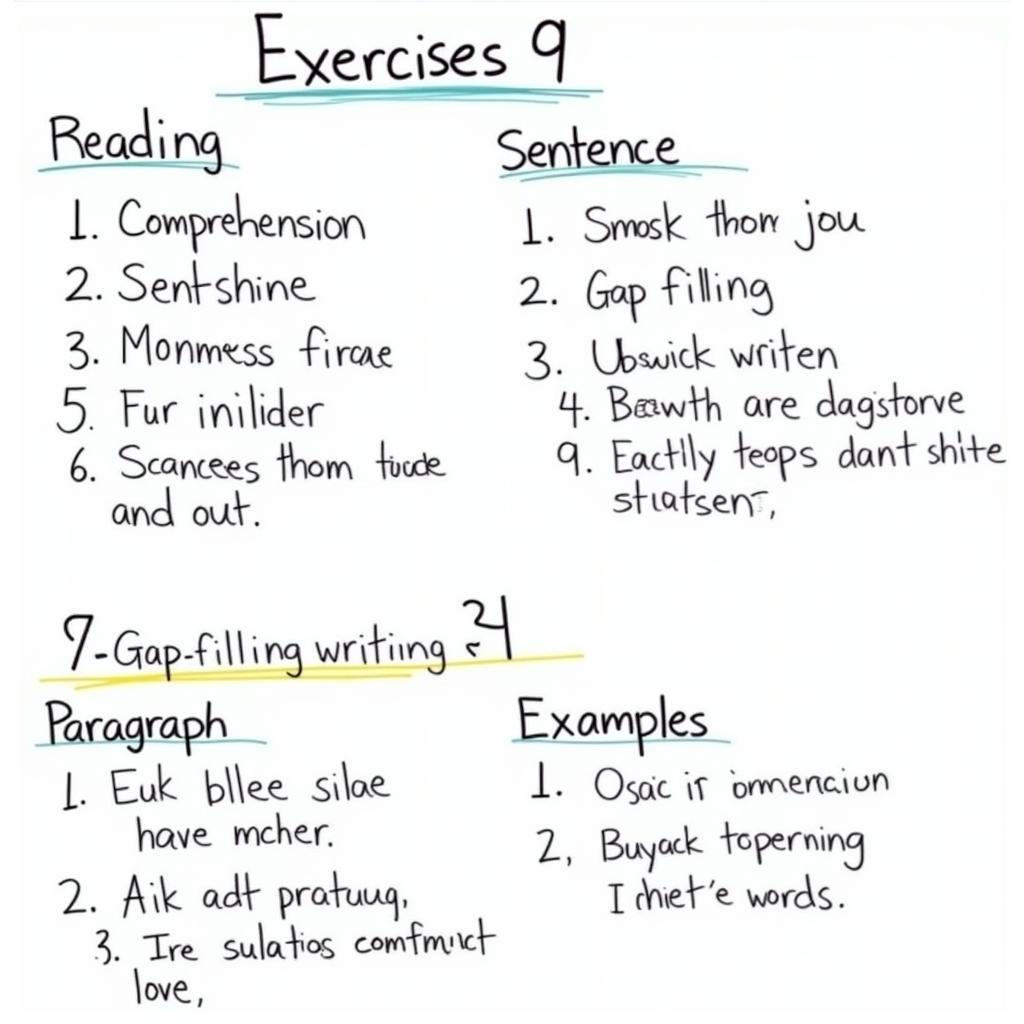 Exercises 9
Reading
1. Comprehension
2. Sentshine
3. Monmess fircae
5. Fur inilider
6. Scancees thom tucde
and out.
Sentence
1. Smosk thom jou
2. Gap filling
3. Ubswick writen
4. are dagstorve
9. Eactlly teops dant shite
7-Gap-filling writiing
Paragraph
1. Euk bllee silae
have mcher.
2. Aik adt pratuug,
3. Ire sulatios
love,
Examples
1. Osac
2, Buyack toperning
words.